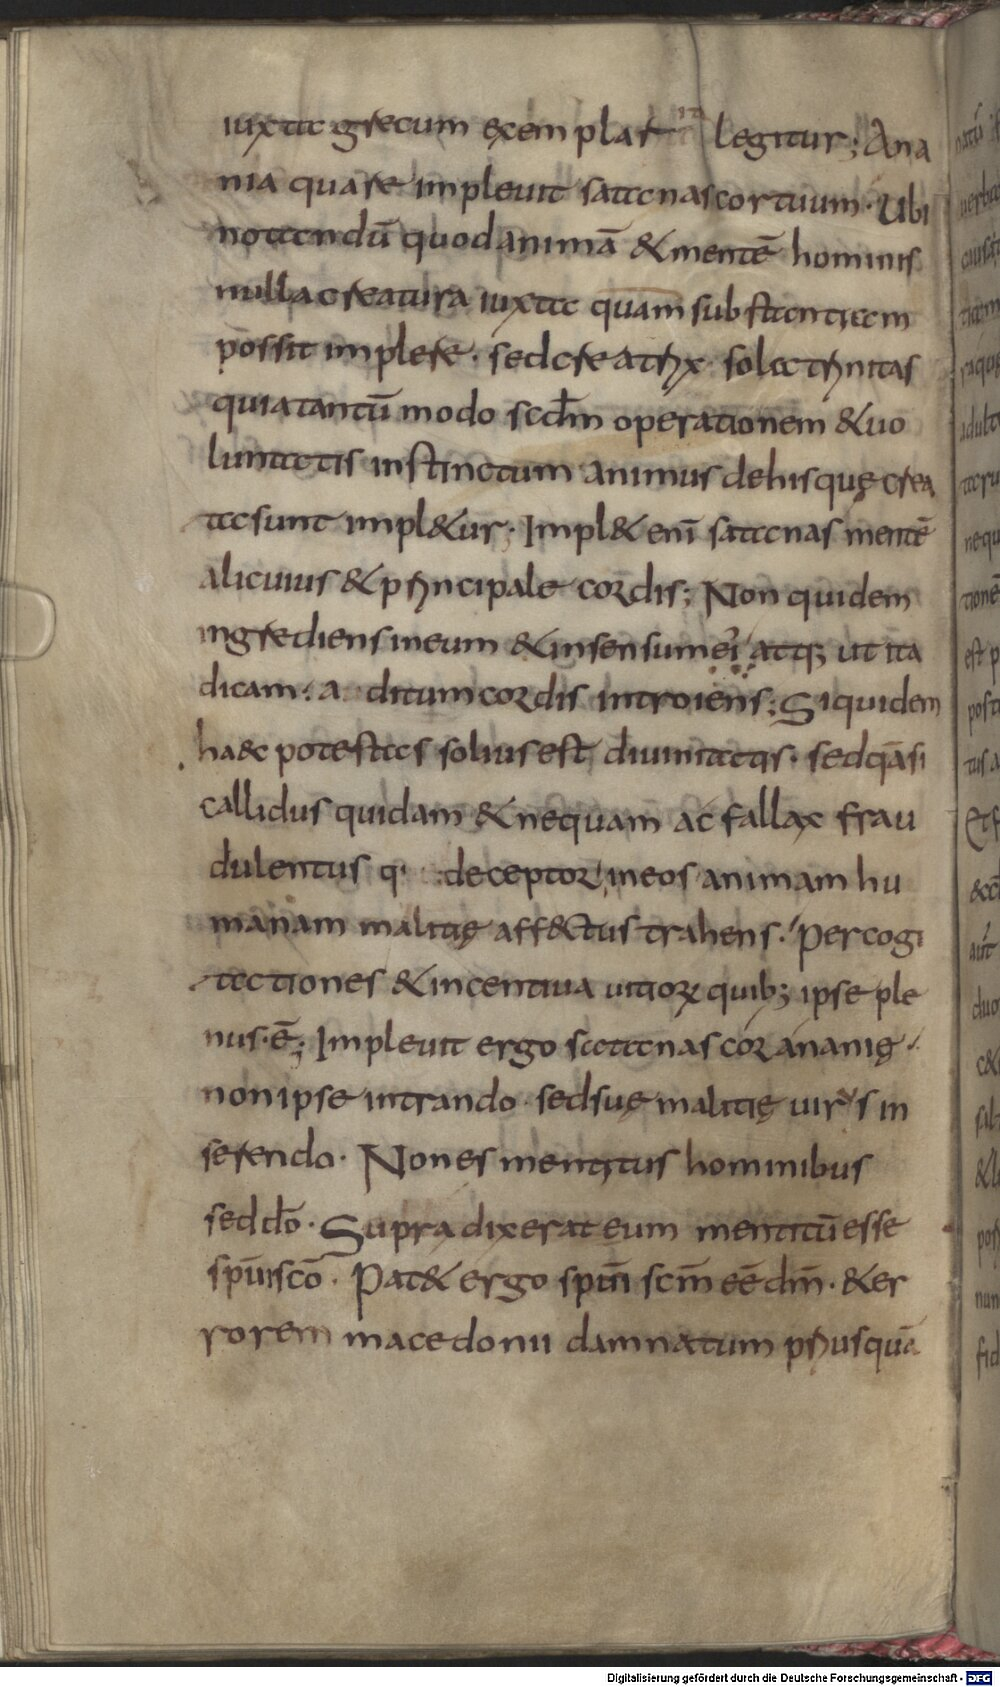 iuxta grecum exemplar legitur; Ana
nia quare impleuit satanas cor tuum· Ubi
notandū quod animā & mentē hominis
nulla creatura iuxta quam substantiam
possit implere· sed creatrix sola trinitas
quia tantū modo scd̄m operationem & uo
luntatis instinctum animus de his quę crea
ta sunt impl&ur· Impl& enī satanas mentē
alicuius & principale cordis; Non quidem
ingrediens in eum & in sensum ei atq; ut ita
dicam· a ditum cordis introiens; Siquidem
haec potestas solius est diuinitatis· sed qāsi
callidus quidam & nequam ac fallax frau
dulentus q· deceptor in eos animam hu
manam malitię aff&ctus trahens· Per cogi
tationes & incentiua uitioꝝ quib; ipse ple
nus·ē; Impleuit ergo satanas cor ananię·
non ipse intrando· sed suę malitię uirus in
serendo· Non es mentitus hominibus
sed dō· Supra dixerat eum mentitū esse
spūi scō· Pat& ergo spm̄ scm̄ eē dm̄· & er
rorem macedonii damnatum priusquā
Digitalisierung gefördert durch die Deutsche Forschungsgemeinschaft - DFG